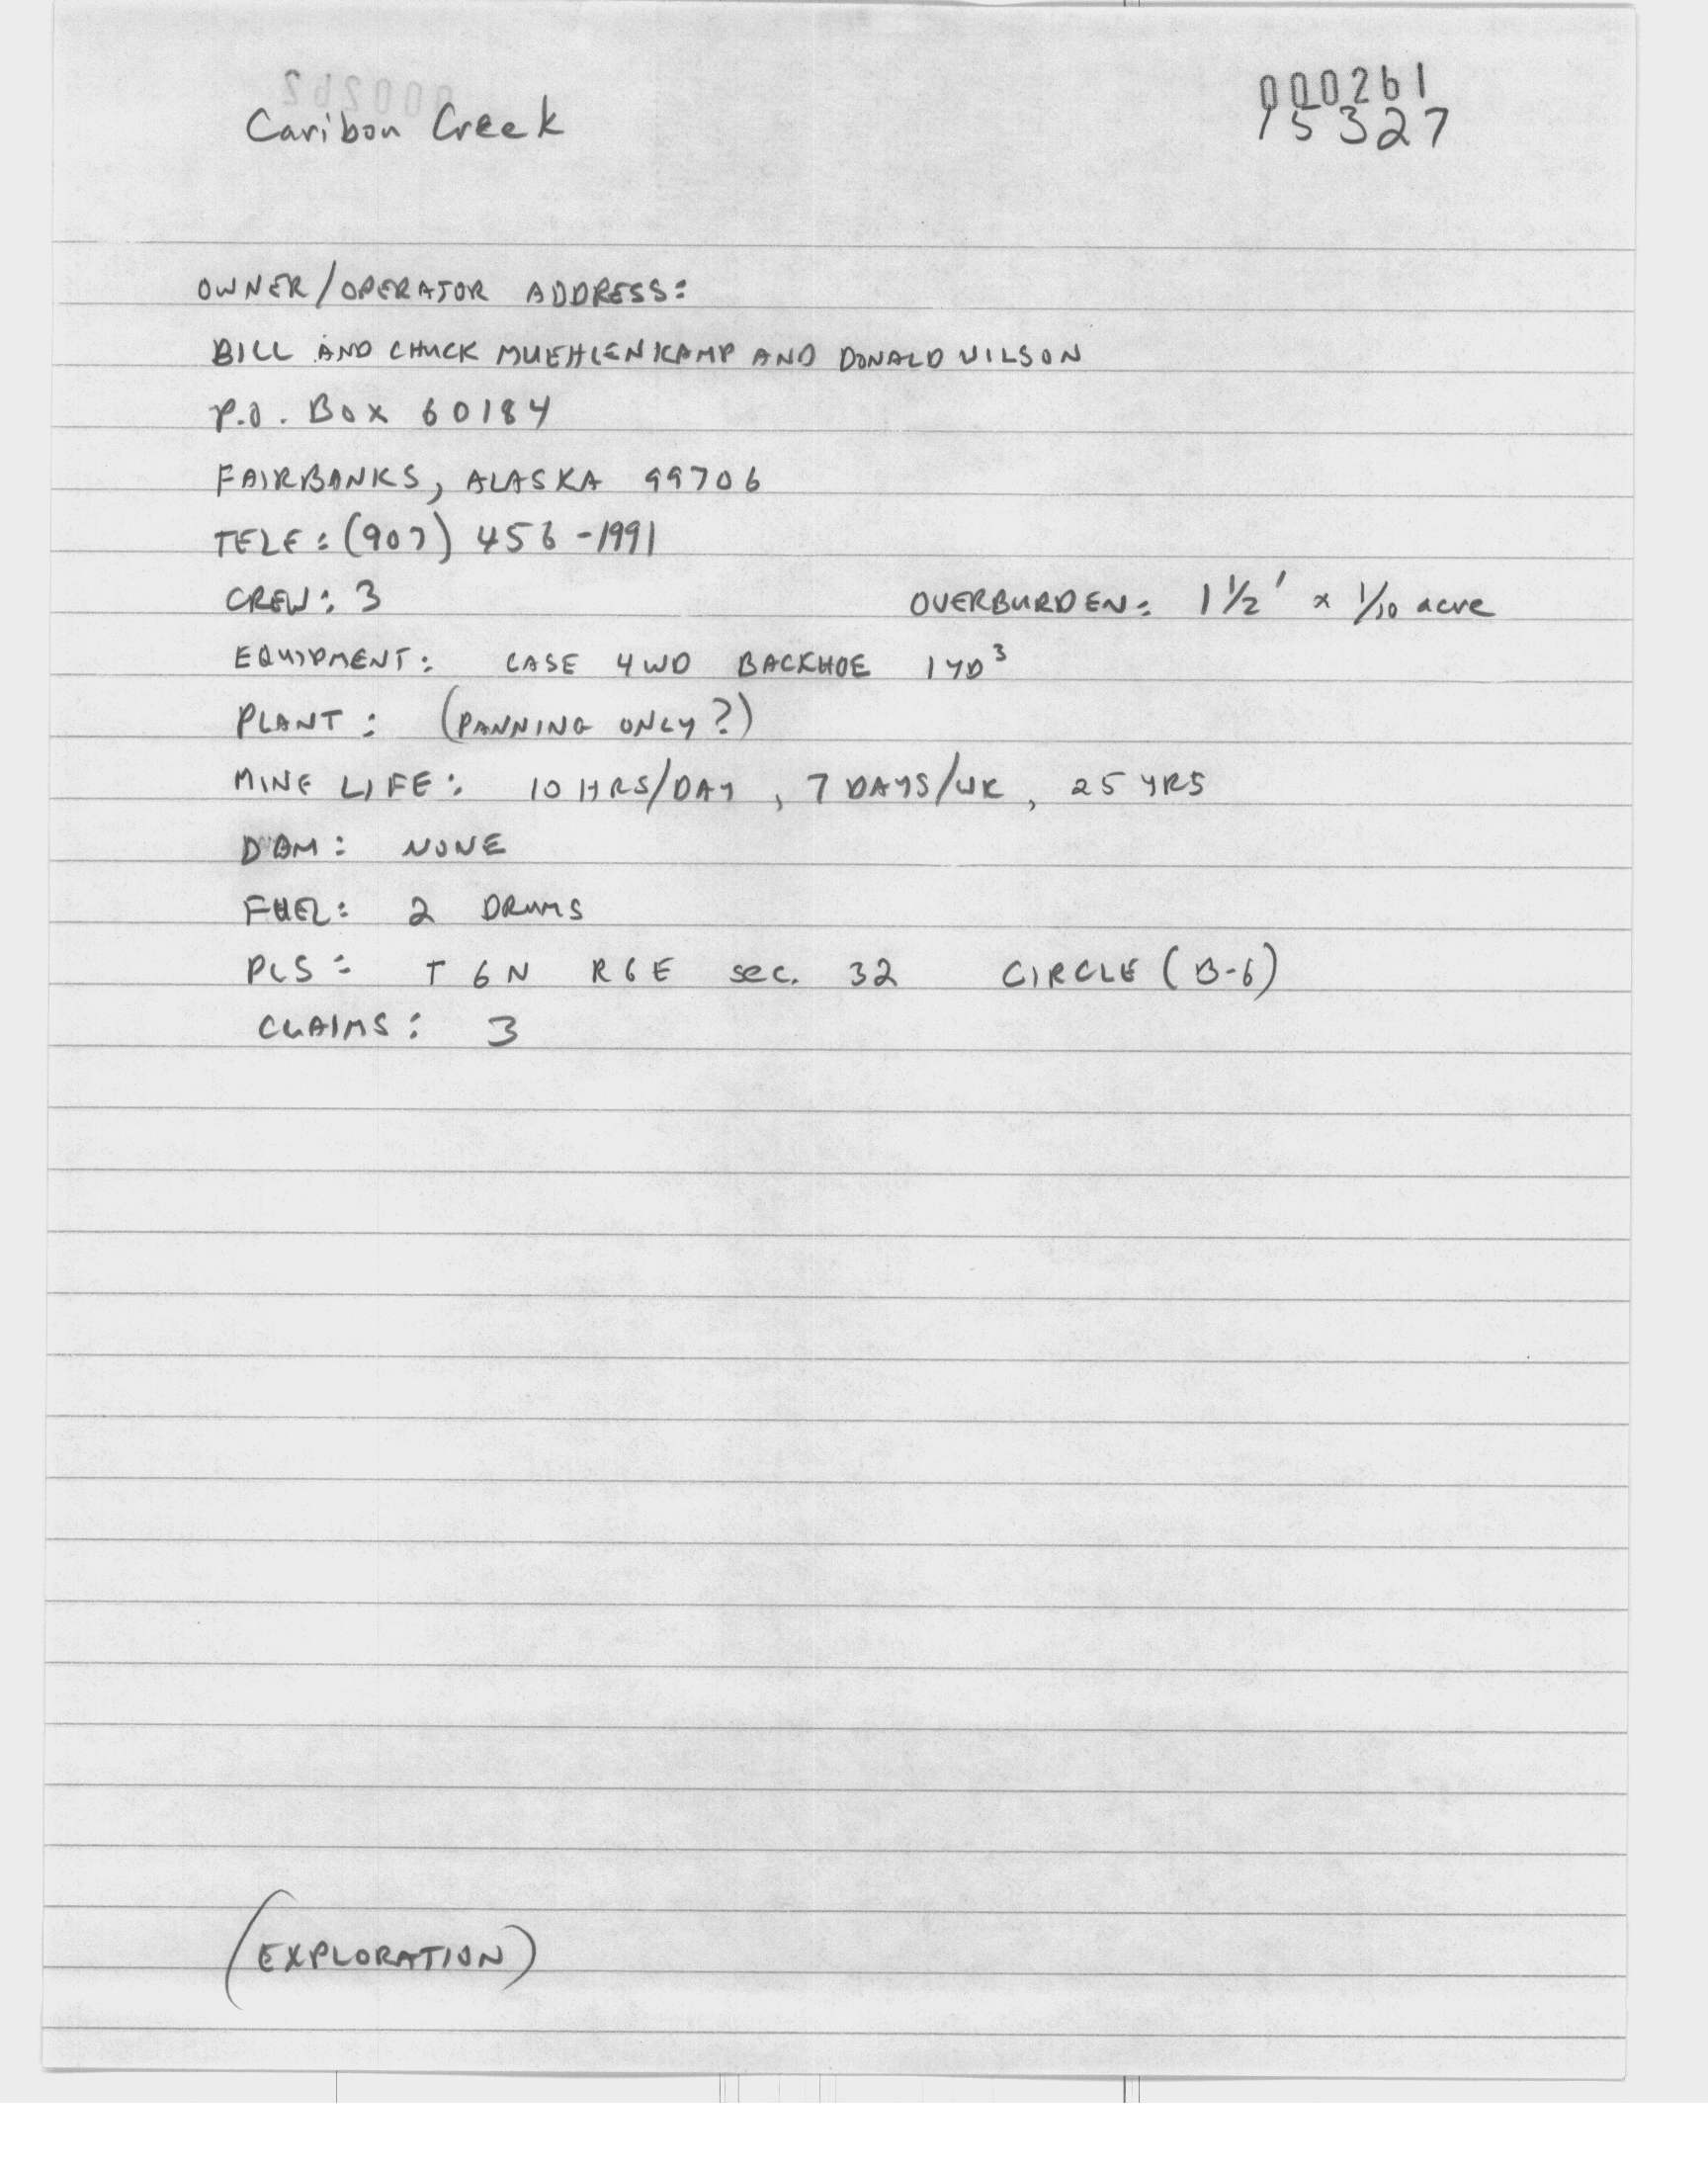 000261
Caribou Creek
15327
OWNER/OPERATOR ADDRESS:
BILL AND CHUCK MUEHLENKAMP AND DONALD WILSON
P.O. BOX 60184
FAIRBANKS, ALASKA 99706
TELE: (907) 456-1991
CREW: 3 OVERBURDEN: 1 1/2' x 1/10 acre
EQUIPMENT: CASE 4WD BACKHOE 1 YD³
PLANT: (PANNING ONLY?)
MINE LIFE: 10 HRS/DAY, 7 DAYS/WK, 25 YRS
DAM: NONE
FUEL: 2 DRUMS
PLS: T 6N R6E sec. 32 CIRCLE (B-6)
CLAIMS: 3
(EXPLORATION)